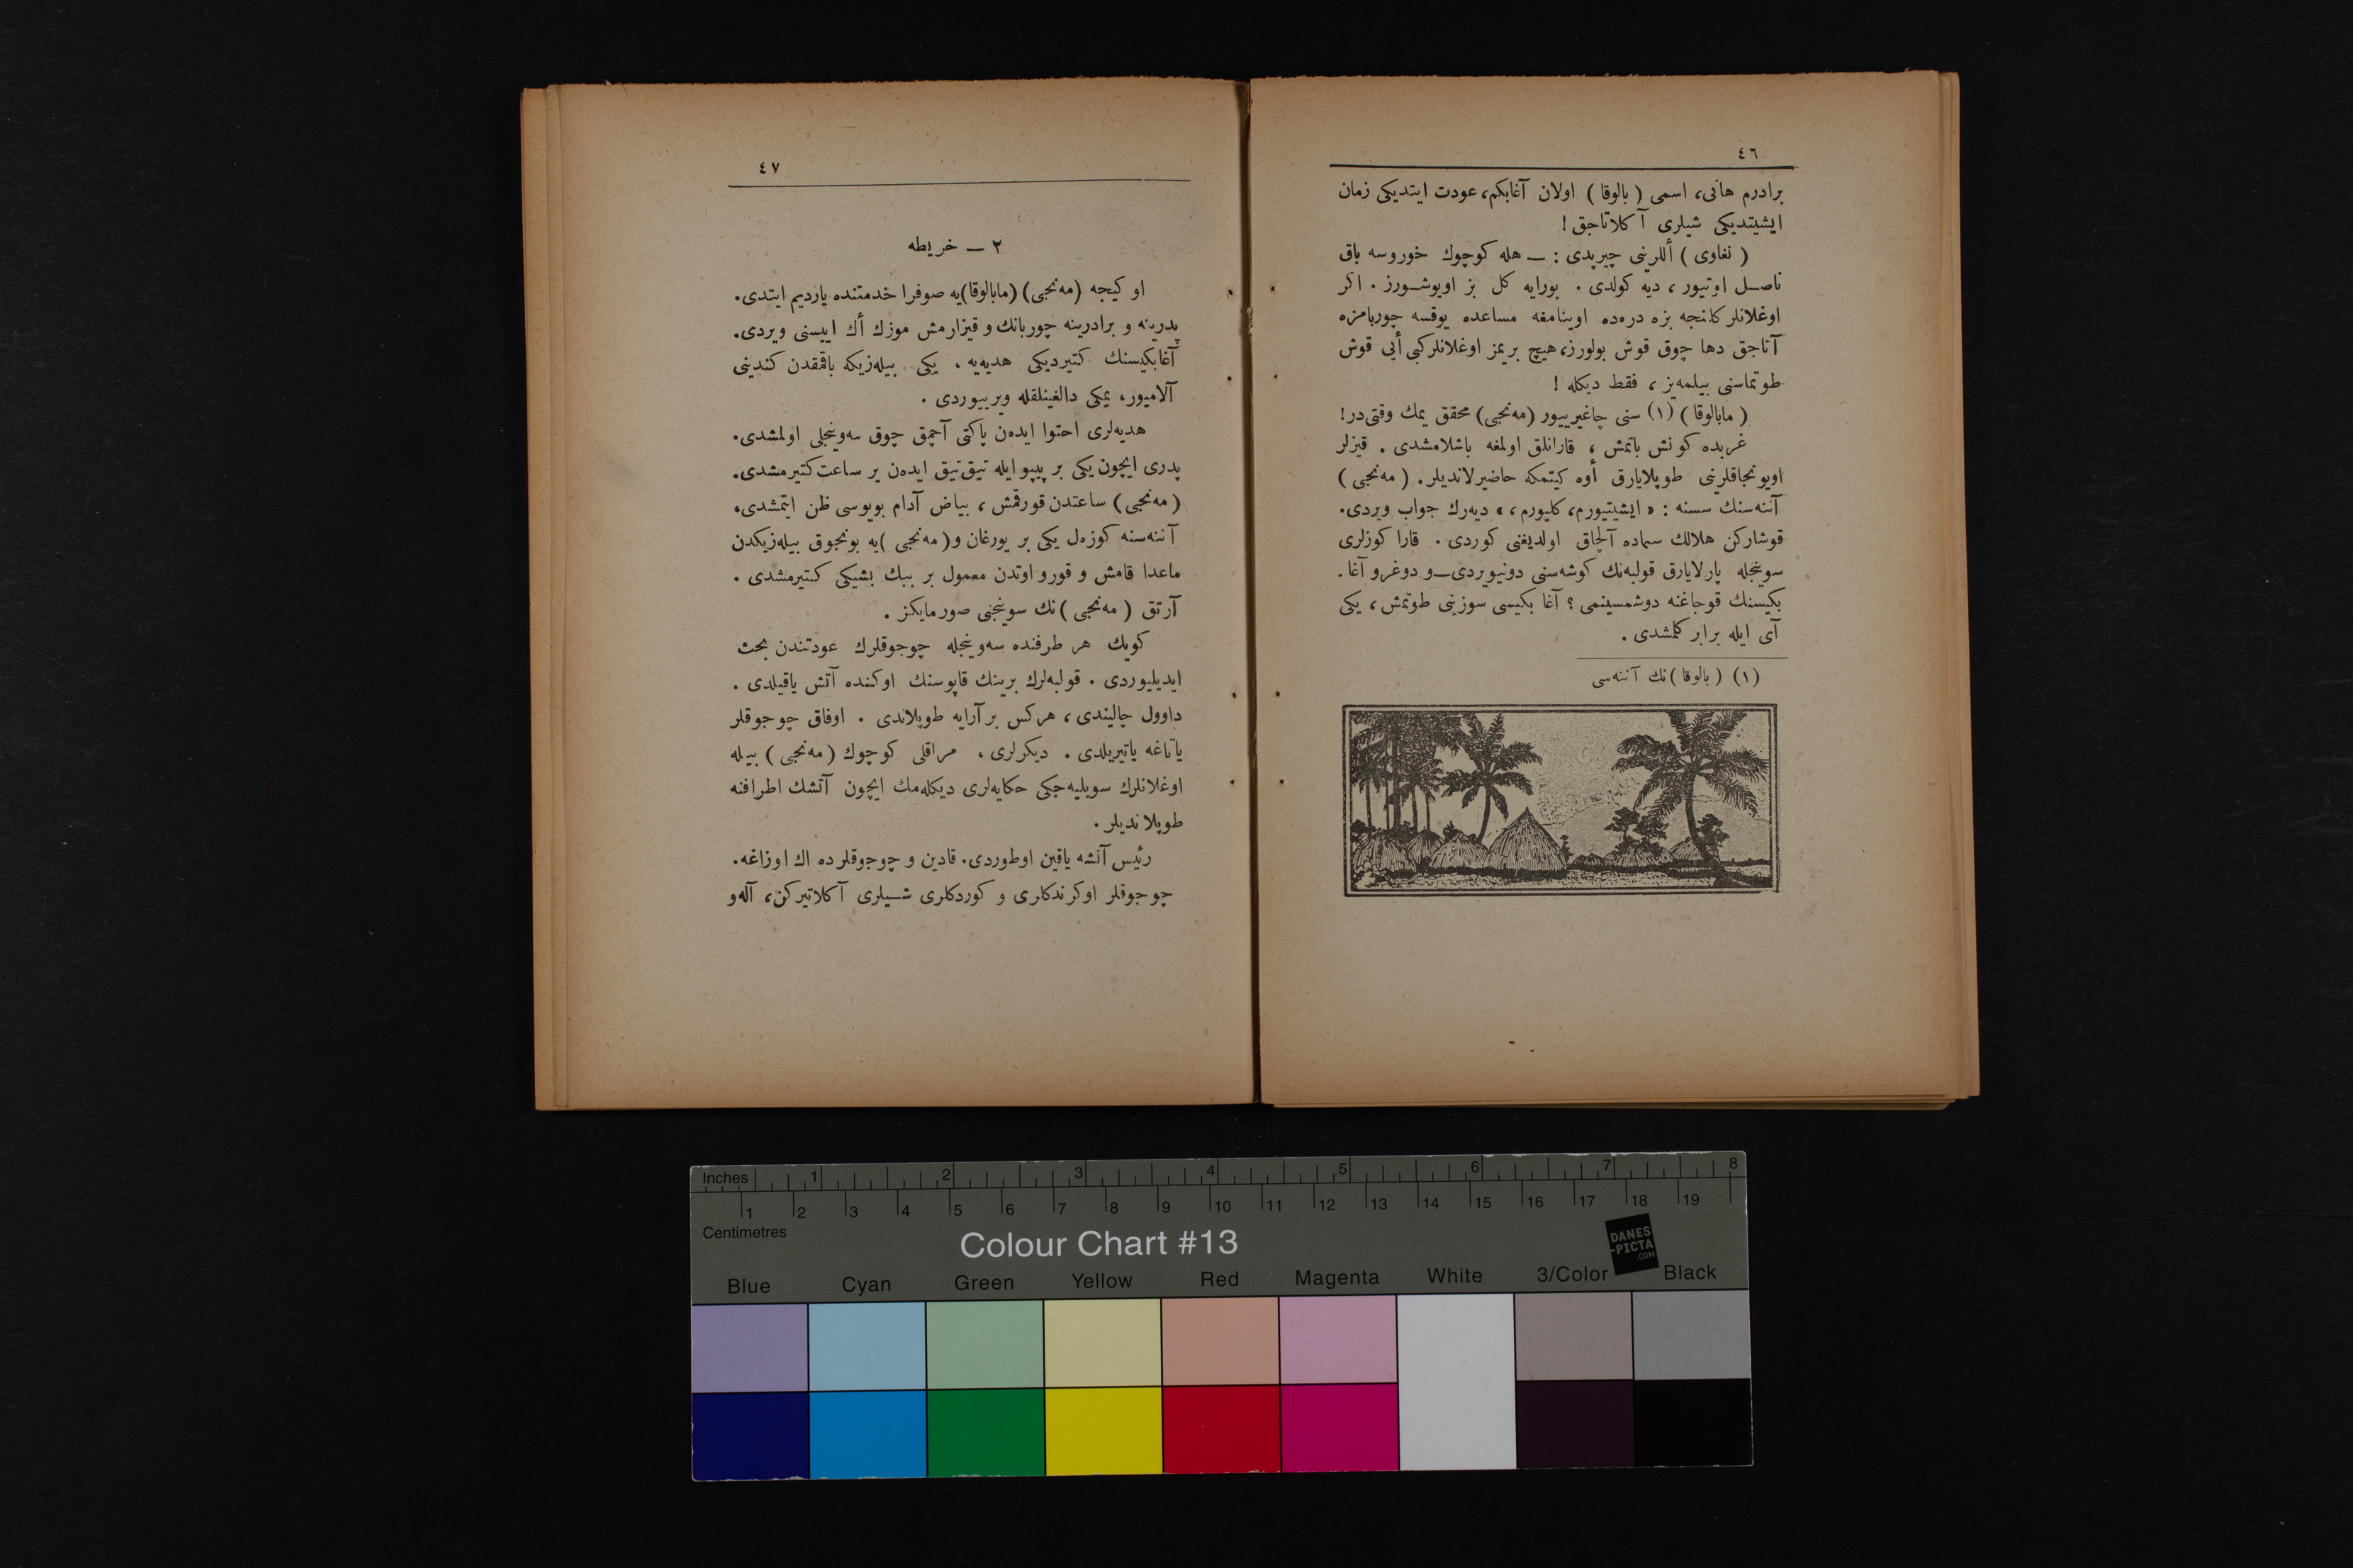 ٤٦
برادرم هانی، اسمی (بالوقا) اولان آغابكم، عودت ایتدیكی زمان
ایشیتدیكی شیلری آكلاتاجق!
(نفاوی) أللرینی چیرپدی: — هله كوچوك خوروسه باق
ناصل اوتیور، دیه كولدی. بورایه كل بز اویوشورز. اكر
اوغلانلر كلنجه بزه دره‌ده اوینامغه مساعده یوقسه چوربامزه
آتاجق دها چوق قوش بولورز، هیچ بریمز اوغلانلر كبی أیی قوش
طوتماسنی بیلمه‌یز، فقط دیكله!
(مابالوقا) (١) سنی چاغیرییور (مه‌نجی) محقق یمك وقتی‌در!
غربده كونش باتمش، قارانلق اولمغه باشلامشدی. قیزلر
اویونجاقلرینی طوپلایارق أوه كیتمكه حاضیرلاندیلر. (مه‌نجی)
آننه‌سنك سسنه: «ایشیتیورم، كلیورم،» دیه‌رك جواب ویردی.
قوشاركن هلالك سماده آلچاق اولدیغنی كوردی. قارا كوزلری
سوینجله پارلایارق قولبه‌نك كوشه‌سنی دونیوردی—و دوغرو آغا.
بكیسنك قوجاغنه دوشمسینمی؟ آغا بكیسی سوزینی طوتمش، یكی
آی ایله برابر كلمشدی.
(١) (بالوقا)نك آننه‌سی
٤٧
٢ — خریطه
او كیجه (مه‌نجی) (مابالوقا)یه صوفرا خدمتنده یاردیم ایتدی.
پدرینه و برادرینه چوربانك و قیزارمش موزك أك اییسنی ویردی.
آغابكیسنك كتیردیكی هدیه‌یه، یكی بیله‌زیكه باقمقدن كندینی
آلامیور، یمكی دالغینلقله ویرییوردی.
هدیه‌لری احتوا ایده‌ن پاكتی آچمق چوق سه‌وینجلی اولمشدی.
پدری ایچون یكی بر پیپو ایله تیق تیق ایده‌ن بر ساعت كتیرمشدی.
(مه‌نجی) ساعتدن قورقمش، بیاض آدام بویوسی ظن ایتمشدی،
آننه‌سنه كوزه‌ل یكی بر یورغان و (مه‌نجی)یه بونجوق بیله‌زیكدن
ماعدا قامش و قورو اوتدن معمول بر ببك بشیكی كتیرمشدی.
آرتق (مه‌نجی)نك سوینجنی صورمایكز.
كویك هر طرفنده سه‌وینجله چوجوقلرك عودتندن بحث
ایدیلیوردی. قولبه‌لرك برینك قاپوسنك اوكنده آتش یاقیلدی.
داوول چالیندی، هركس بر آرایه طوپلاندی. اوفاق چوجوقلر
یاتاغه یاتیریلدی. دیكرلری، مراقلی كوچوك (مه‌نجی) بیله
اوغلانلرك سویلیه‌جكی حكایه‌لری دیكله‌مك ایچون آتشك اطرافنه
طوپلاندیلر.
رئیس آتشه یاقین اوطوردی. قادین و چوجوقلرده اك اوزاغه.
چوجوقلر اوكرندكلری و كوردكلری شیلری آكلاتیركن، آله‌و
Inches 1 2 3 4 5 6 7 8
1 2 3 4 5 6 7 8 9 10 11 12 13 14 15 16 17 18 19
Centimetres
Colour Chart #13
DANES
-PICTA
.COM
Blue Cyan Green Yellow Red Magenta White 3/Color Black